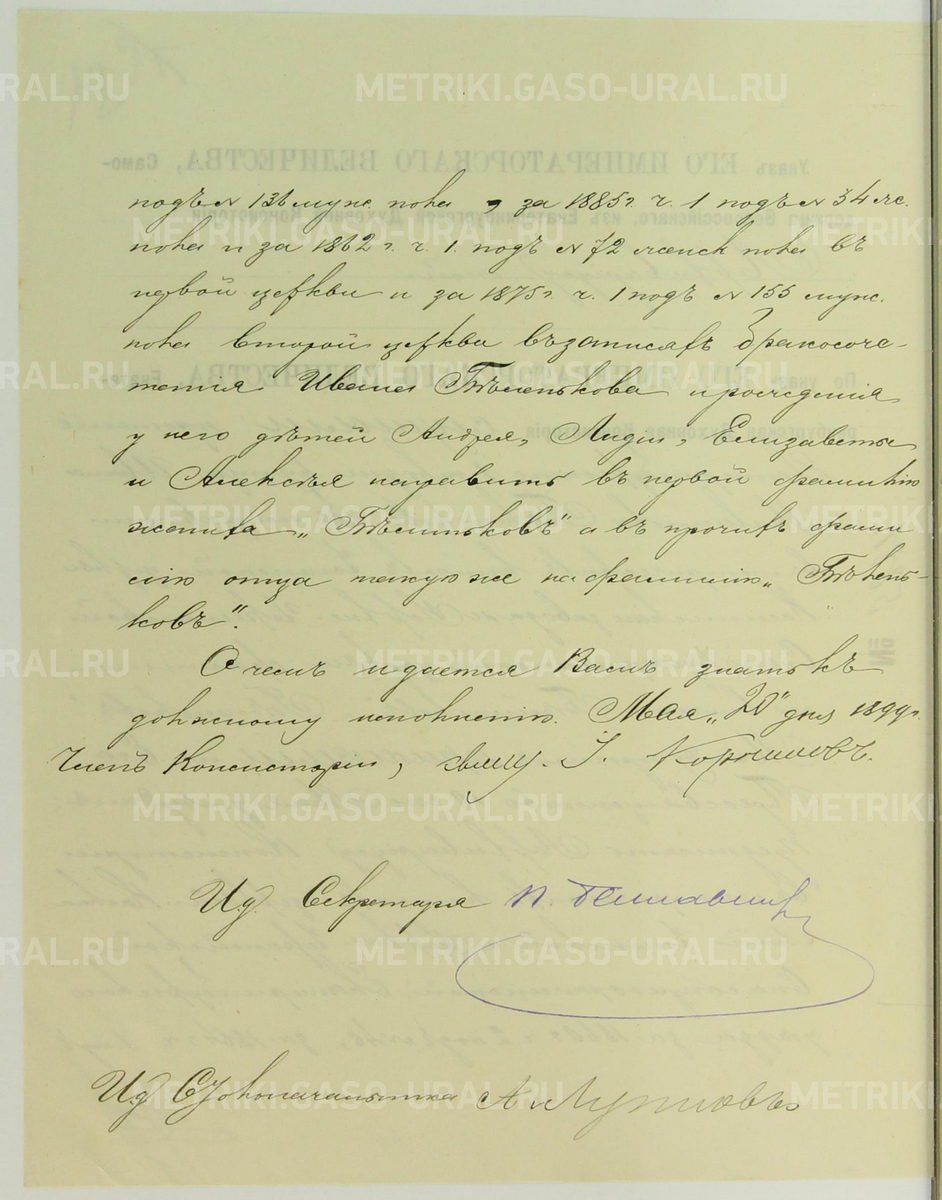 подъ № 131 муж. пола, за 1885 г. ч. 1 подъ № 34 же.
пола и за 1862 г. ч. 1. подъ № 72 женск пола въ
первой церкви и за 1875 г. ч. 1 подъ № 155 муж.
пола второй церкви въ записяхъ бракосоче-
танія Ивана Бѣленькова и рожденія
у него дѣтей Андрея, Лидіи, Елизаветы
и Алексѣя исправить въ первой фамилію
жениха „Бѣленьковъ" а въ прочихъ фами
лію отца такую же на фамилію „Бѣлень-
ковъ".
О чемъ и дается Вамъ знать къ
должному исполненію. Мая „20" дня 1899 г.
Членъ Консисторіи, свящ. І.
И.д. Секретаря П.
И.д. Столоначальника А.
METRIKI.GASO-URAL.RU